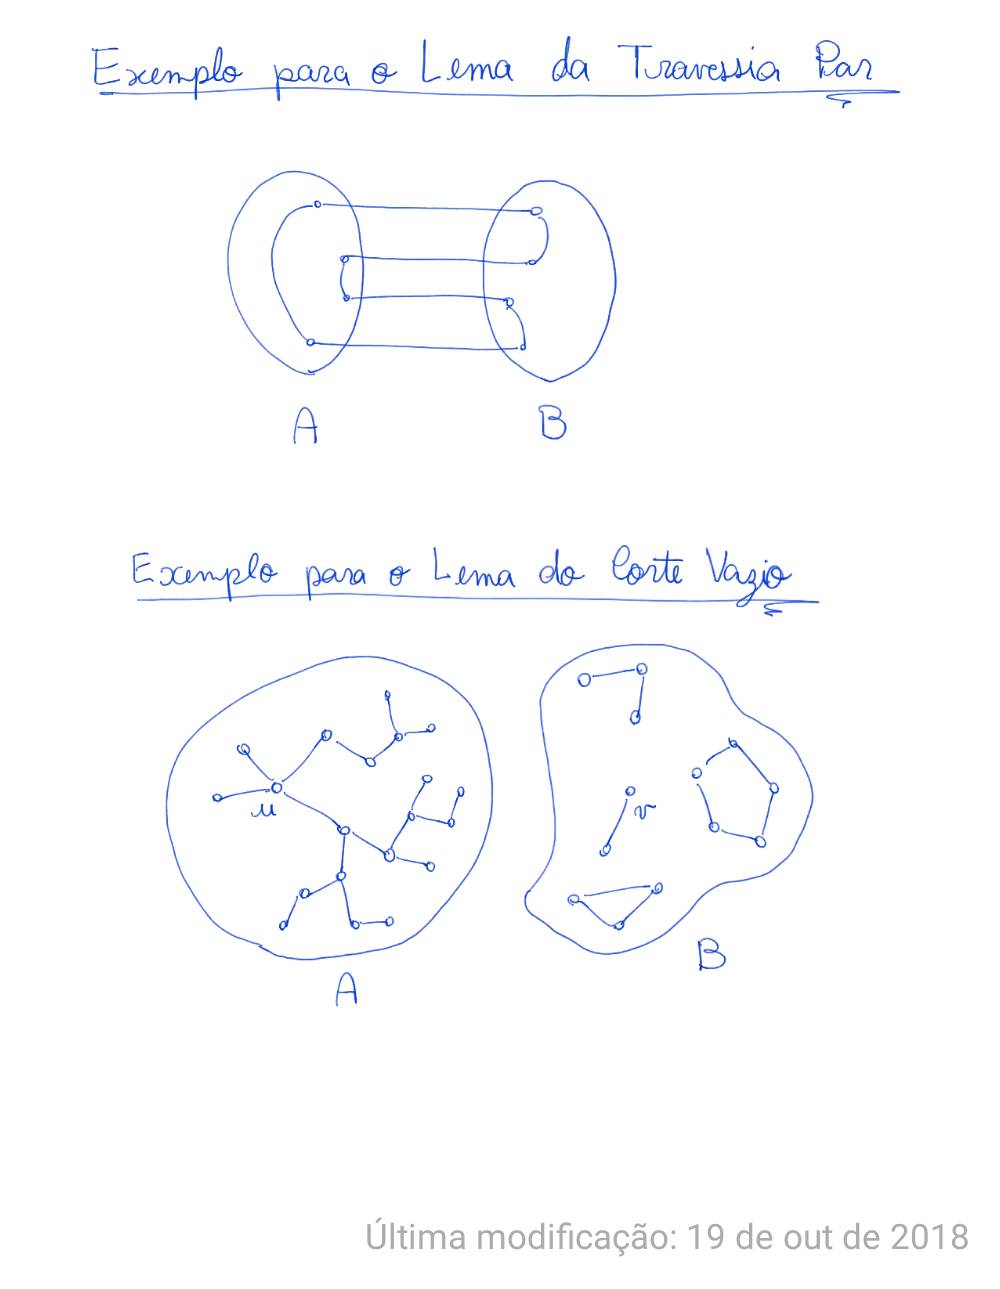 Exemplo para o Lema da Travessia Par
A
B
Exemplo para o Lema do Corte Vazio
u
v
A
B
Última modificação: 19 de out de 2018